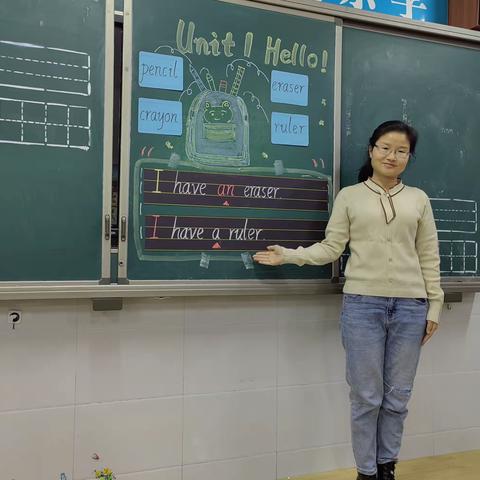 Unit 1 Hello!
pencil
eraser
crayon
ruler
I have an eraser.
I have a ruler.